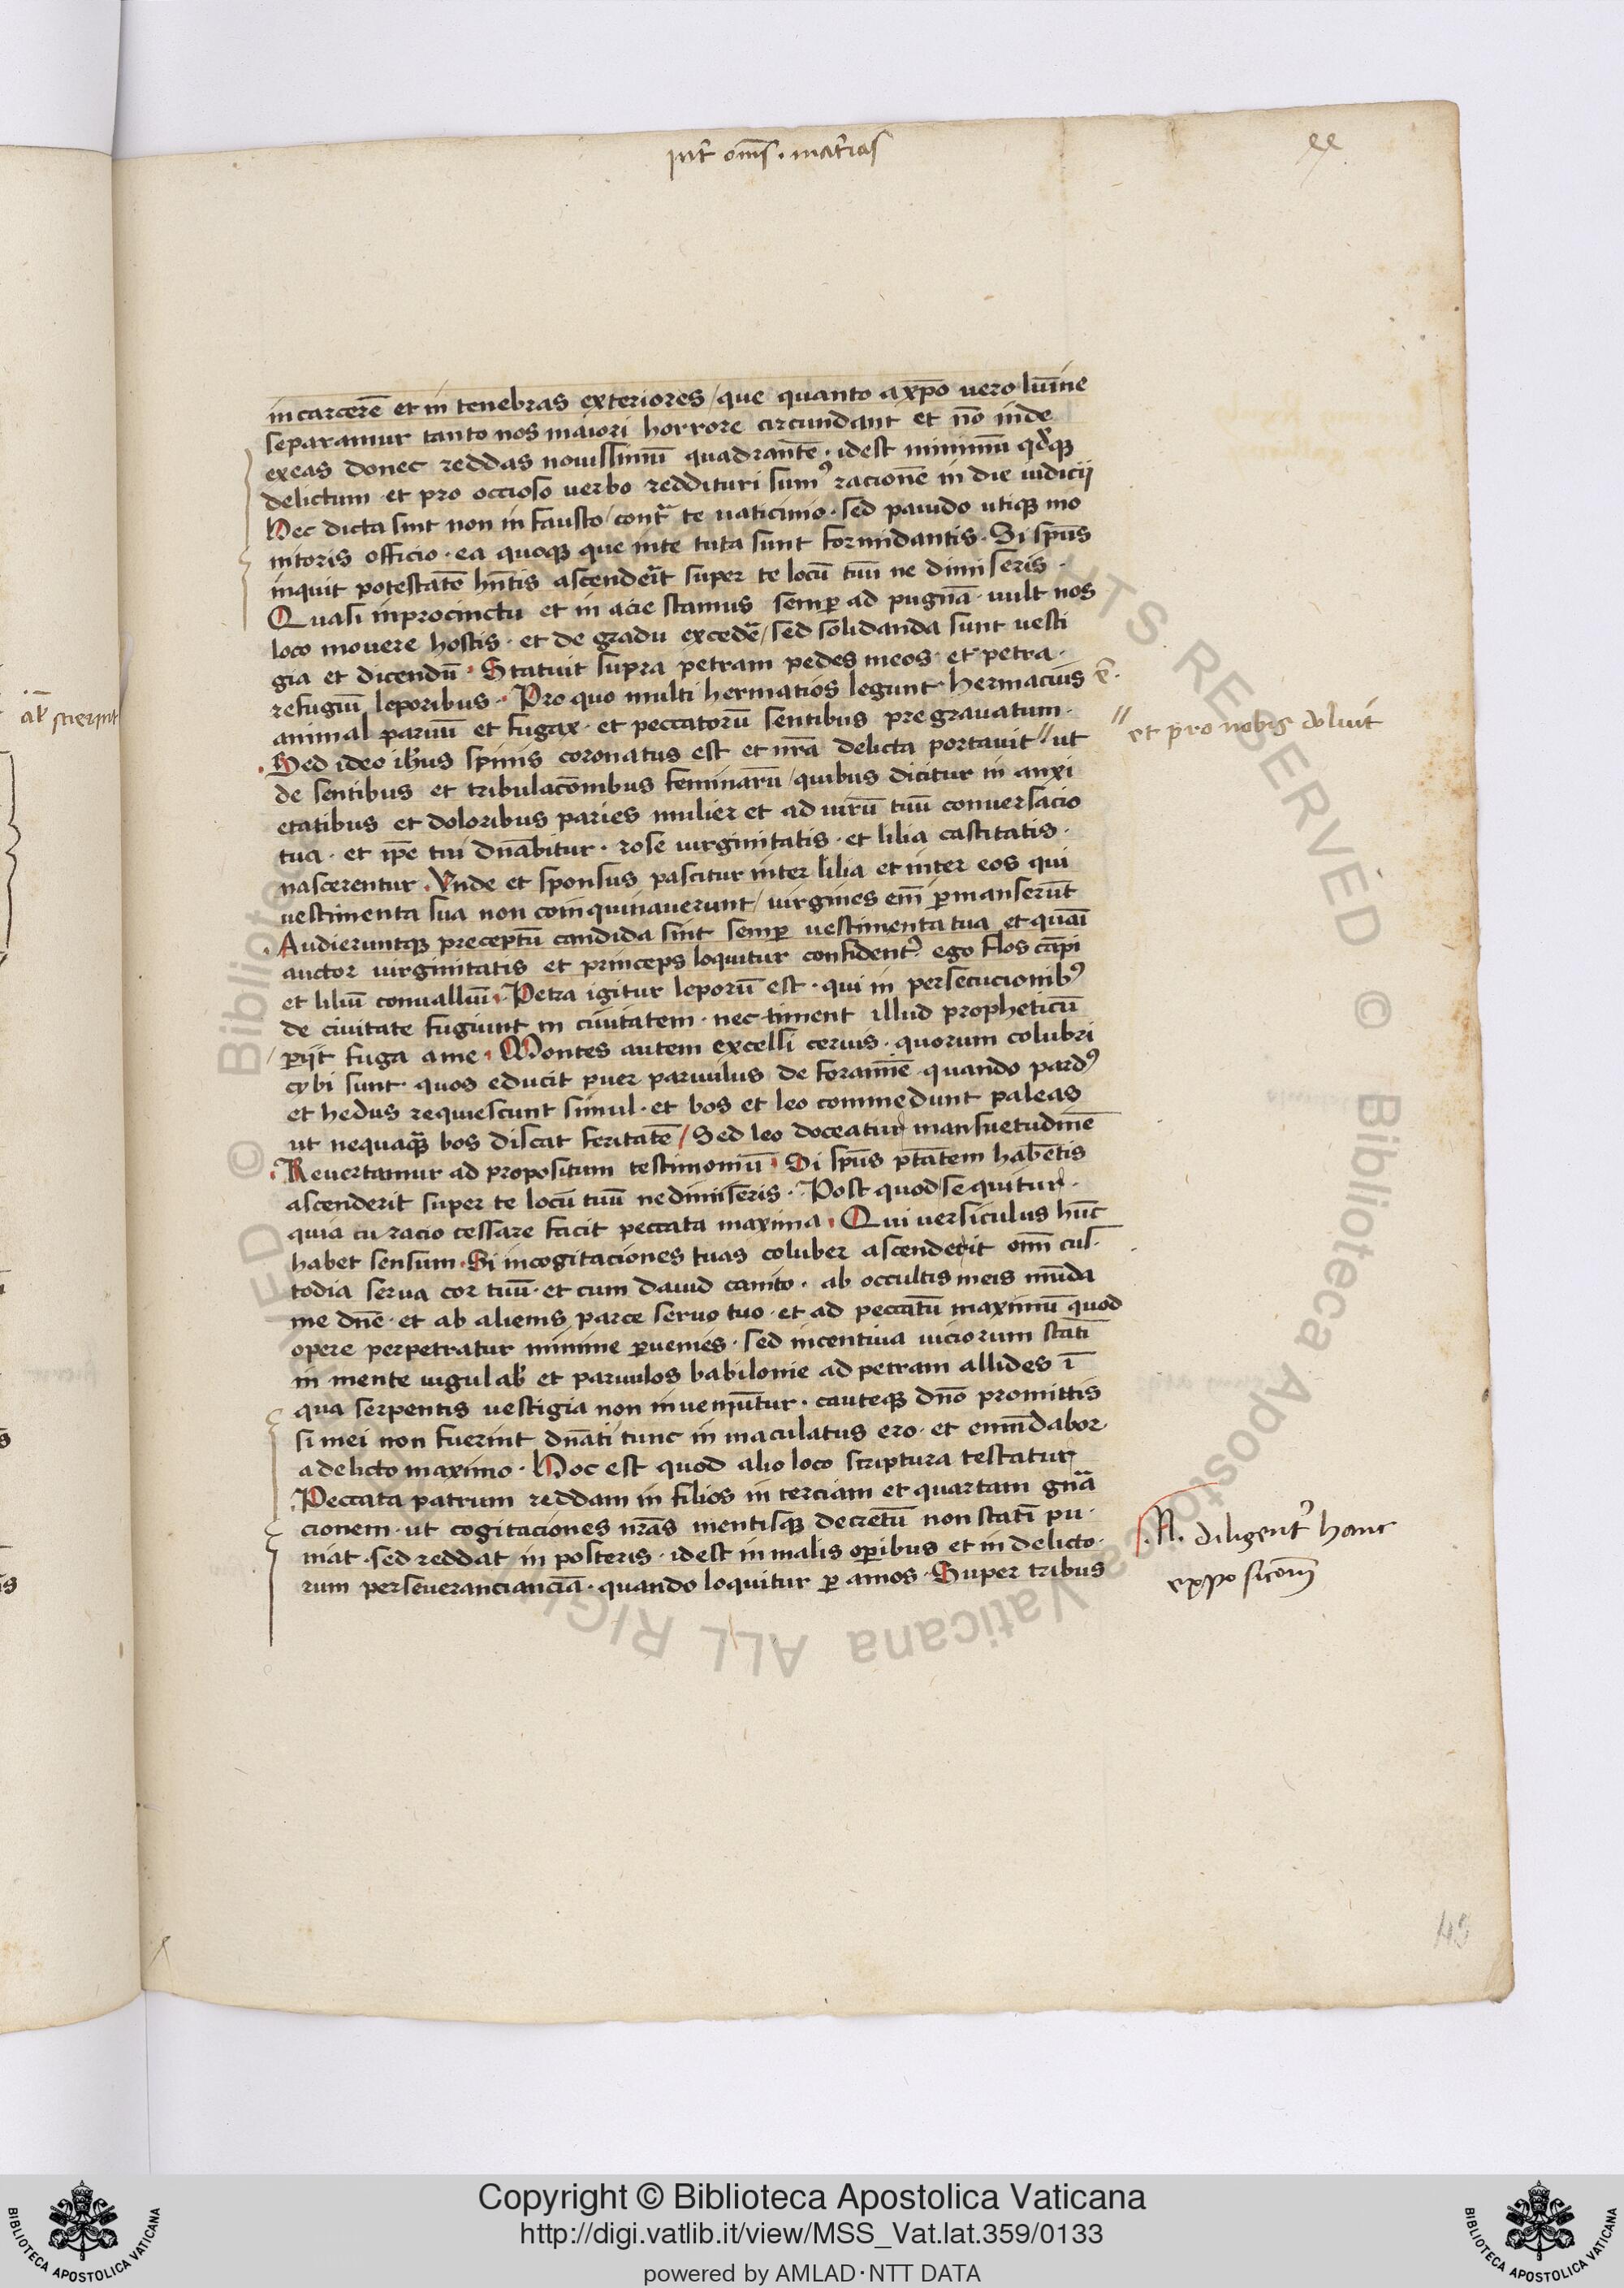 int̄ om̄s . mat̄ias
in carcerē et in tenebras exteriores / que quanto a xp̄o vero lumīne
separamur tanto nos maiori horrore circundant et nō inde
exeas donec reddas nouissimū quadrantē · idest minimū qd̄qꝫ
delictum · et pro occioso uerbo reddituri sumꝰ racionē in die iudicii
Hec dicta sint non in fausto / contͣ te uaticinio · sed pauido utiqꝫ mo
nitoris officio · ea quoqꝫ que inte tuta sunt formidantis · Si sp̄us
inquit potestatē hn̄tis ascenderīt super te locū tuū ne dimiseris ·
Quasi inprocinctu et in acie stamus semꝑ ad pugnā · uult nos
loco mouere hostis · et de gradu excedē / sed solidanda sunt uesti
gia et dicendū · Statuit supra petram pedes meos · et petra ·
refugiū leporibus · Pro quo multi hermatios legunt · hermacius ē ·
animal paruū et fugax · et peccatorū sentibus pregrauatum ·
Sed ideo ih̄us spinis coronatus est et nr̄a delicta portauit // ut
// et pro nobis doluit
de sentibus et tribulac̄onibus feminarū / quibus dicitur in anxi
etatibus et doloribus paries mulier et ad uirū tuū conuersacio
tua · et ip̄e tui dn̄abitur · rose uirginitatis · et lilia castitatis ·
nascerentur · Vnde et sponsus pascitur inter lilia et inter eos qui
uestimenta sua non coinquinauerunt / uirgines em̄ ꝑmanserūt
Audieruntqꝫ preceptū candida sint semꝑ uestimenta tua et quāi
auctor uirginitatis et princeps loquitur confidentꝰ ego flos cāpi
et liliū conualliū · Petra igitur leporū est · qui in persecucionibꝰ
de ciuitate fugiunt in ciuitatem · nec timent illud propheticū
ꝑiit fuga a me · Montes autem excelsi ceruis · quorum colubri
cybi sunt quos educit puer paruulus de foramīe quando pardꝰ
et hedus requiescunt simul · et bos et leo commedunt paleas
ut nequaqꝫ bos discat feritatē / Sed leo doceatur mansuetudinē
Reuertamur ad propositum testimoniū · Si sp̄us ptātem habētis
ascenderit super te locū tuū ne dimiseris · Post quod sequitur ·
quia cu racio cessare facit peccata maxima · Qui uersiculus hūc
habet sensum · Si incogitaciones tuas coluber ascenderit om̄i cus
todia serua cor tuū · et cum dauid canito · ab occultis meis mūda
me dn̄e · et ab alienis parce seruo tuo · et ad peccatū maximū quod
opere perpetratur minime ꝑuenies · sed incentiua uiciorum statī
in mente iugulab̄ et paruulos babilonie ad petram allides ī
qua serpentis uestigia non inueniūtur · cauteqꝫ dn̄o promittis
si mei non fuerint dn̄ati tunc in maculatus ero · et emūdabor
a delicto maximo · Hoc est quod alio loco scriptura testatur
Peccata patrum reddam in filios in terciam et quartam gn̄a
cionem · ut cogitaciones nr̄as mentisqꝫ decretū non statī pu
niat · sed reddat in posteris · idest in malis oꝑibus et in delicto
.N. diligentꝰ hanc
exposicōm̄
rum perseueranciancīa · quando loquitur ꝑ amos · Super tribus
45
al̄ scierint
Copyright © Biblioteca Apostolica Vaticana
http://digi.vatlib.it/view/MSS_Vat.lat.359/0133
powered by AMLAD·NTT DATA
BIBLIOTECA APOSTOLICA VATICANA
BIBLIOTECA APOSTOLICA VATICANA